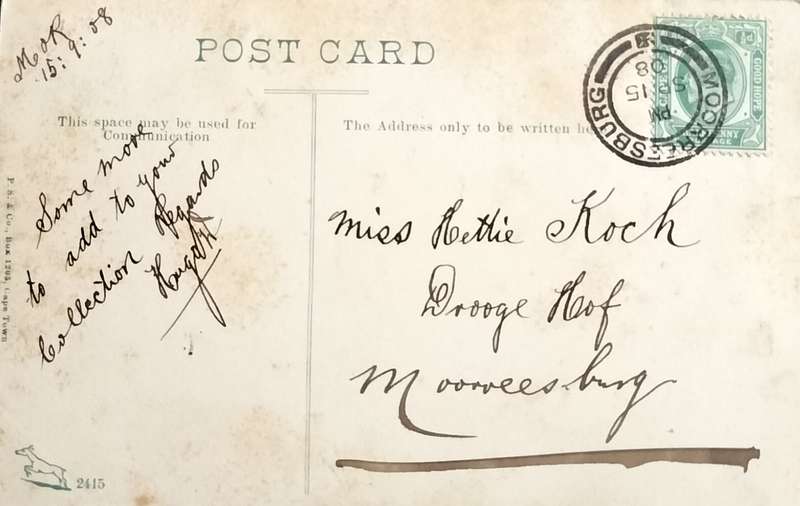 MOR
15:9:08
POST CARD
This space may be used for
Communication
The Address only to be written he
MOORREESBURG
PM
SP 15
08
GOOD HOPE
Some more
to add to your
Collection Regards
Miss Hettie Koch
Drooge Hof
Moorreesburg
P. S. & Co., Box 1295, Cape Town
2415